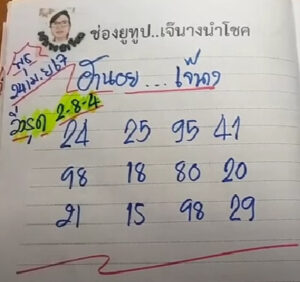 ช่องยูทูป..เจ๊นางนำโชค
พธ
24 เม.ย 67
ฮานอย...เจ๊นาง
วิ่งรูด 2-8-4
24 25 95 41
98 18 80 20
21 15 98 29